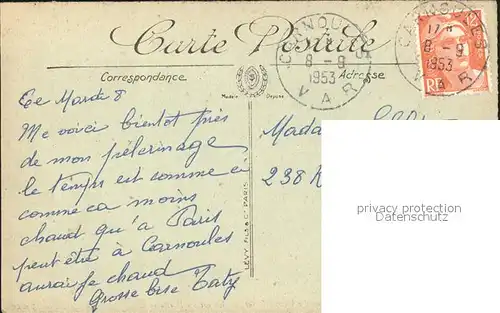 Carte Postale
Correspondance
Adresse
Modèle Déposé
CARNOULES
8 - 9
1953
VAR
CARNOULES
17 H
8 - 9
1953
VAR
RF
Ce Mardi 8
Me voici bientot près
de mon pèlerinage
le temps est comme ci
comme ca moins
chaud qu'à Paris
peut être à Carnoules
aurai je chaud
Grosse bise Taty
Mada
238
LEVY FILS & Cie PARIS
privacy protection
Datenschutz